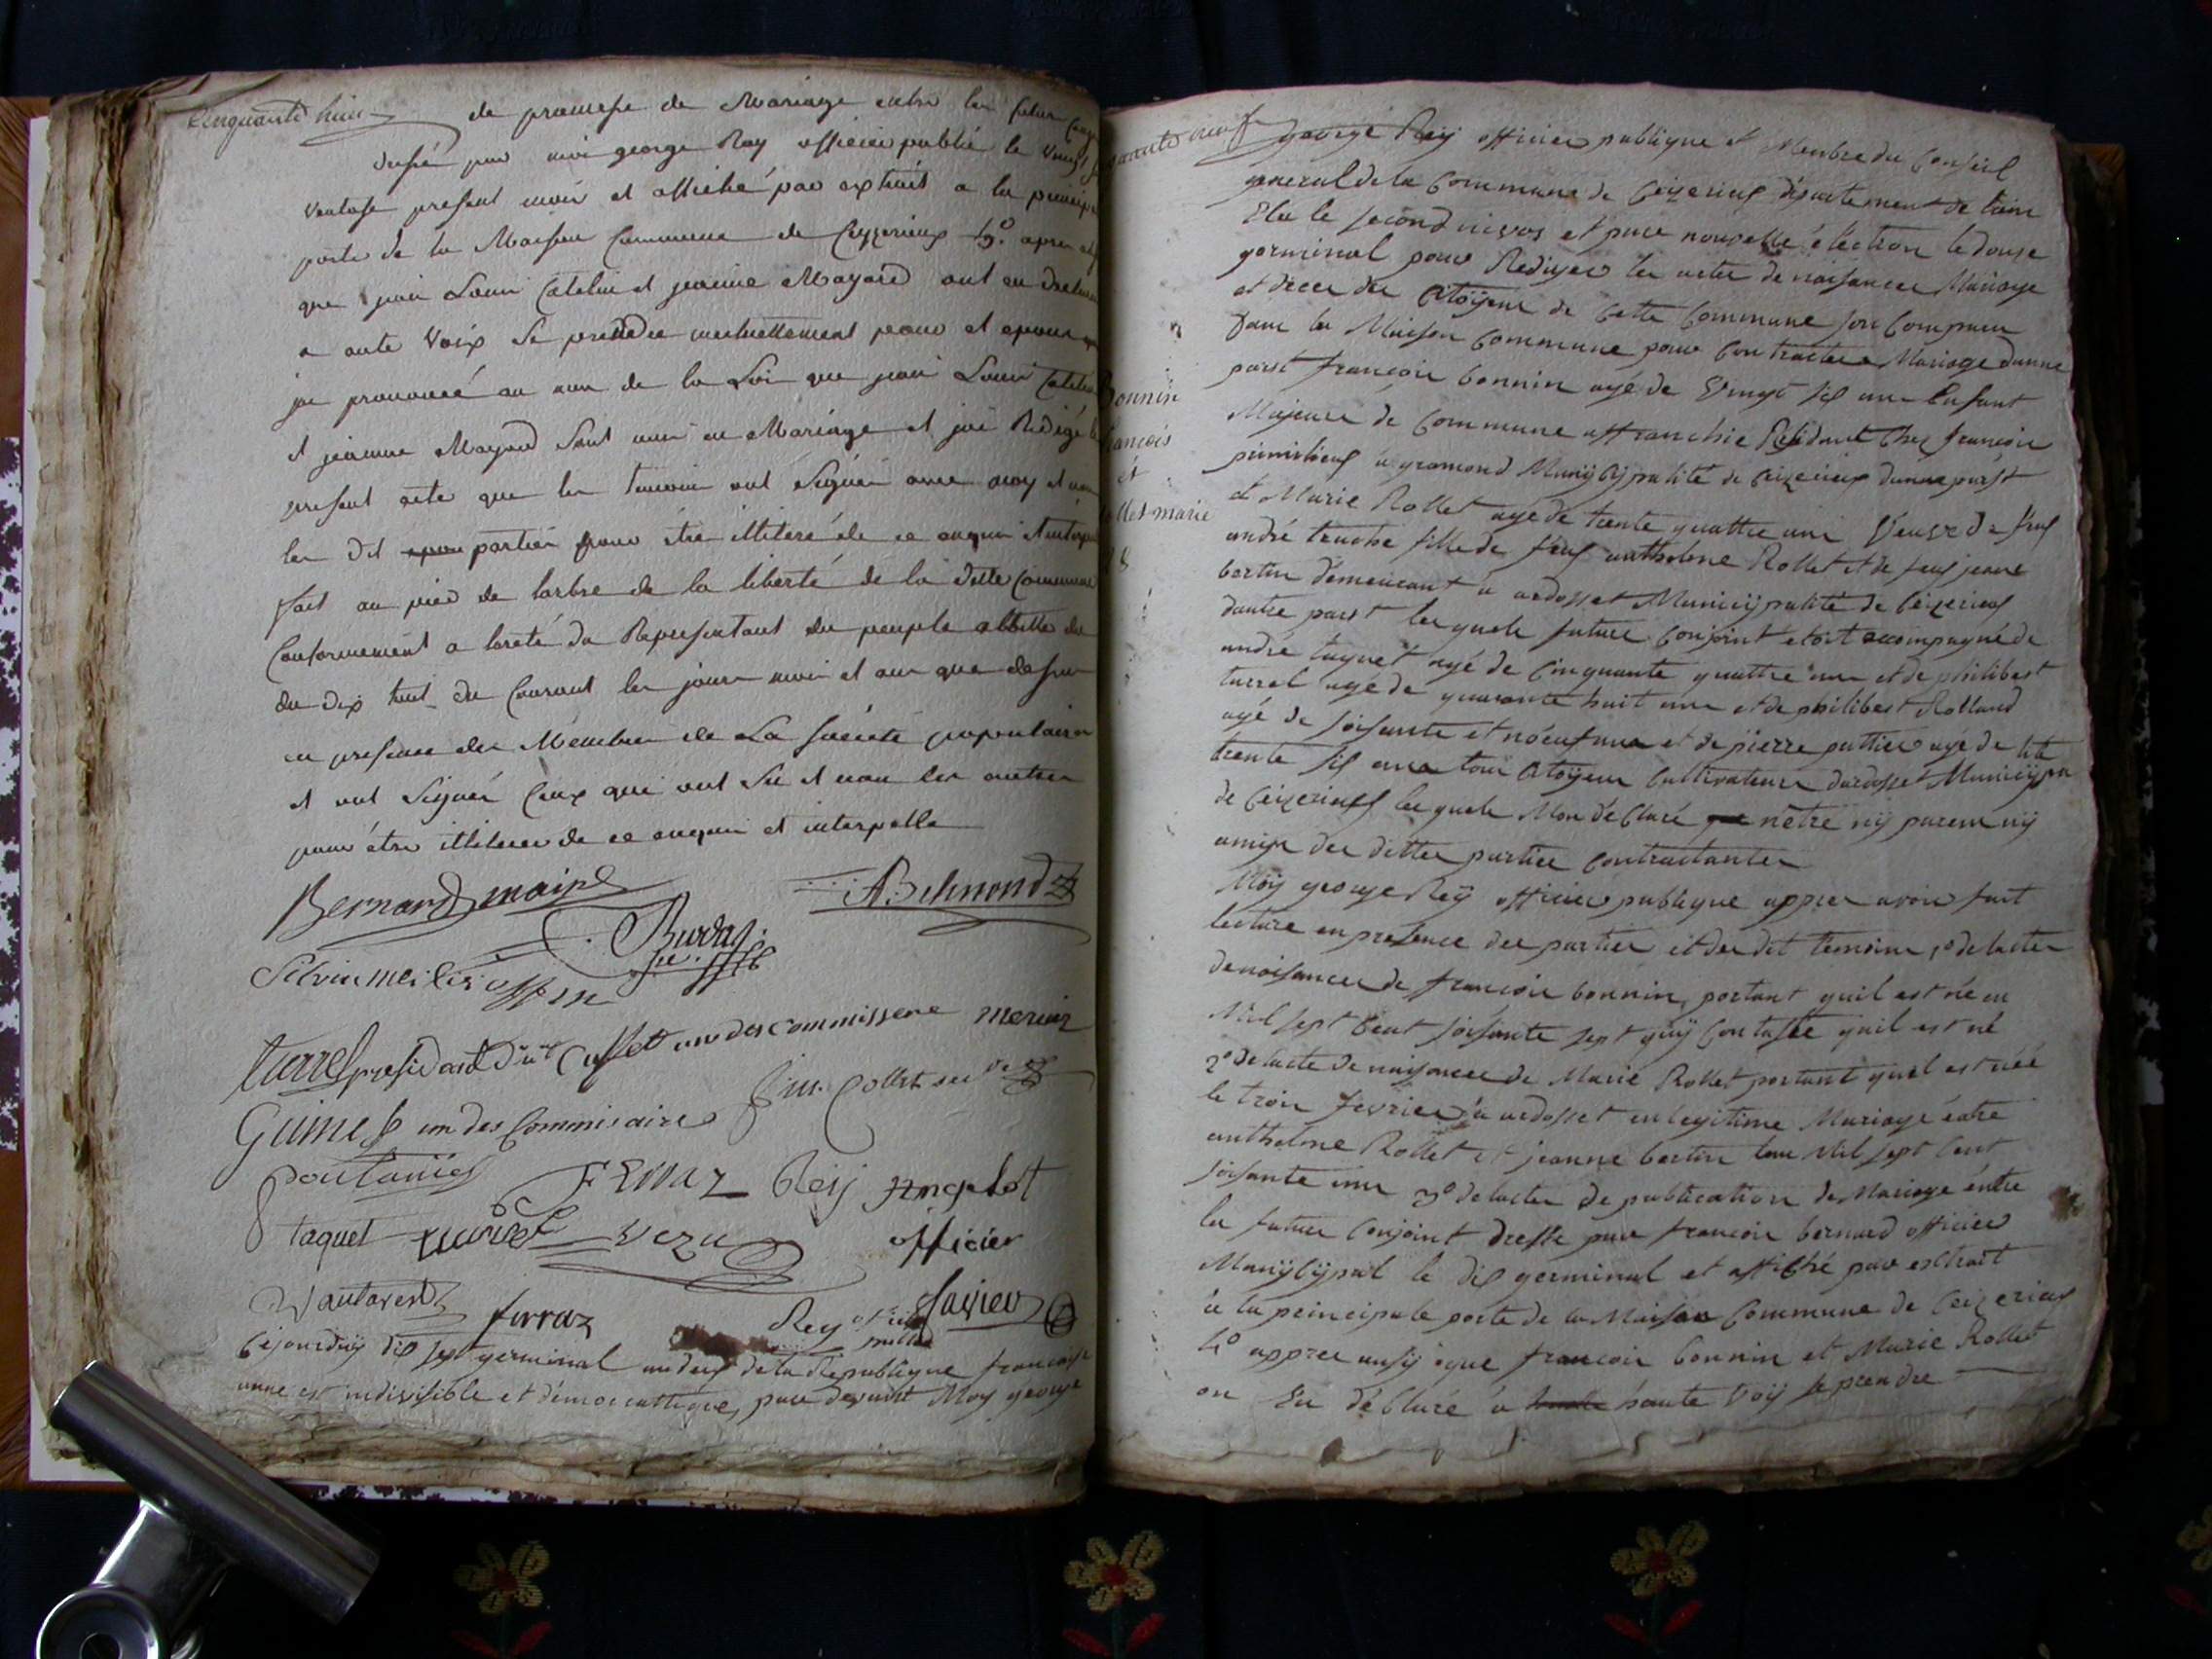 Cinquante huit
de promesse de Mariage entre les futur
dressé par moi george Rey officier publié le vingt
ventose present mois et affiché par extrait a la principa
porte de la Maison Commune de Ceyzerieux 4º. apres
que jean Louis Catelin et jeanne Mayard ont eu declaré
a aute voix se prendre mutuellement pour et epoux
jai prononcé au nom de la Loi que jean Louis Catelin
et jeanne Mayard sont unis en Mariage et jai Redigé le
present acte que les temoin ont Signés avec moy et non
les dit partier pour être illiteré de ce enquis et interpe
fait au pied de larbre de la liberté de la ditte Commune
Conformement a larété du Representant du peuple albitte
du dix huit du Courant les jour mois et an que dessus
en presence des Membre de La Société populaire
et ont Signér Ceux qui ont Su et non les autres
pour être illiteré de ce enquis et interpellé
Bernard maire
Burdat
taquet
Vezu
officier
ferraz
turrel president
Cusset un des commissere mercier
un des Commisaire
Ferraz Reij
Rey officier
Cejourduy dix sept germinal an deux de la Republique francaise
unne est indivisible et démocrattique, pare devant Moy george
george Reij officier publique et Menbre du Conseil
general de la Commune de Ceizerieux département de lain
Elu le second nivos et pare nouvelle élection le douse
germinal pour Rediger les actes de naissances Mariage
et deces des Citoÿens de Cette Commune son Comparu
dans la Maison Commune pour Contracter Mariage dunne
parst francois bonnin agé de Vingt six ans Enfant
Majeure de Commune affranchie Residant Chez francois
a gramond Munijcijpalité de Ceizerieux dunne parst
et Marie Rollet agé de trente quattre ans Veuve de feux
andré fille de feux anthelme Rollet et de feux jeanne
bertin démeurant a ardosset Municijpalité de Ceizerieux
dautre parst lesquels future Conjoint etoit accompagné de
andré taquet agé de Cinquante quattre ans et de philibert
turrel agé de quarante huit ans et de philibert Rolland
agé de soisante et nœuf ans et de pierre puttier agé de
trente six ans tous Citoÿens Cultivateurs dardosset Municijpa
lité
de Ceizerieux lesquels Mon déClaré nêtre nij parens nij
amijs des dittes parties Contractantes
Moij george Reij officier publique appres avoir fait
lecture en presence des parties et des dit temoins 1º de lactes
de naisances de francois bonnin, portant quil est né en
Mil sept Cent soisante sept
2º de lacte de naisances de Marie Rollet portant quel est née
le trois fevrier a ardosset en legitime Mariage entre
anthelme Rollet et jeanne bertin lan Mil sept Cent
soisante 3º de lactes de publication de Mariage éntre
les future Conjoint dressé pare francois bernard officier
Munijcijpal le dix germinal et affiché par extrait
à la principale porte de la Maison Commune de Ceizerieux
4º appres ausij que francois bonnin et Marie Rollet
on Eu déClaré à haute Voij se prendre
Bonnin
francois
et
Rollet marie